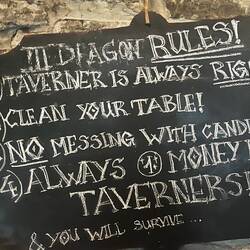 III DRAGON RULES!
TAVERNER IS ALWAYS RIG
CLEAN YOUR TABLE!
NO MESSING WITH CAND
4) ALWAYS 1 MONEY
TAVERNERS
& YOU WILL SURVIVE ...